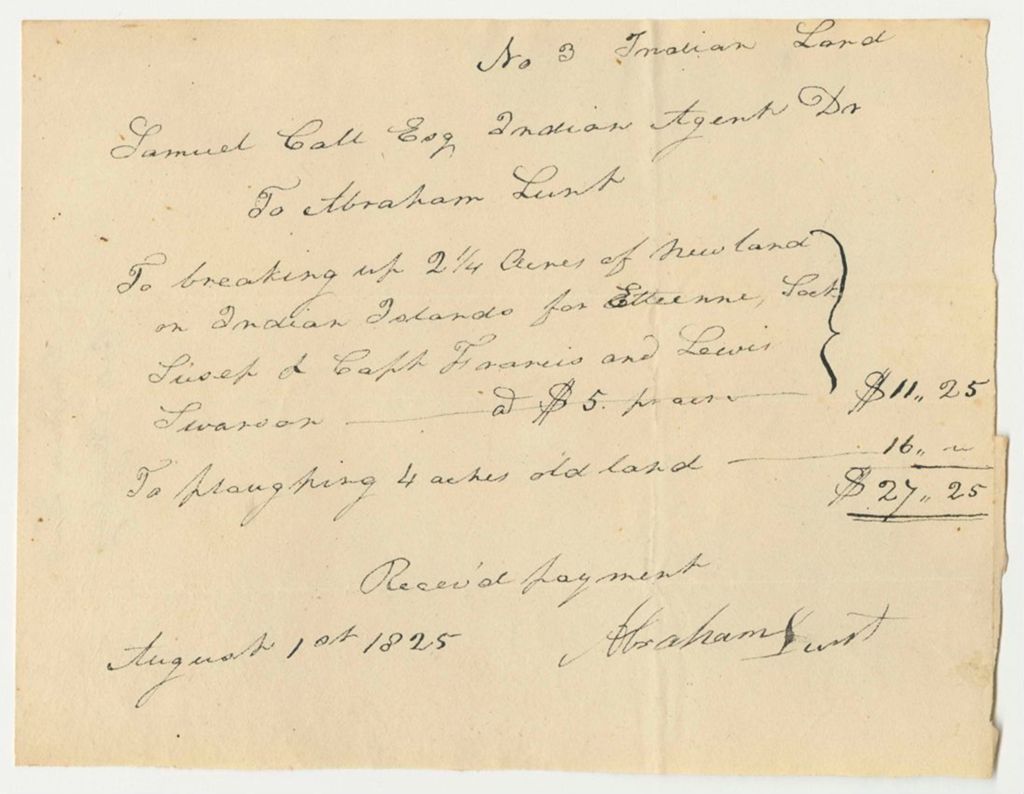 No 3 Indian Land
Samuel Call Esq Indian Agent Dr
To Abraham Lunt
To breaking up 2 1/4 Acres of New land
on Indian Islands for Etteenne, Sock
Susep & Capt Francis and Lewis
Swarson — a $5. pr acre — $11,, 25
To ploughing 4 acres old land — 16,, "
$27,, 25
Receiv'd payment
August 1st 1825 Abraham Lunt